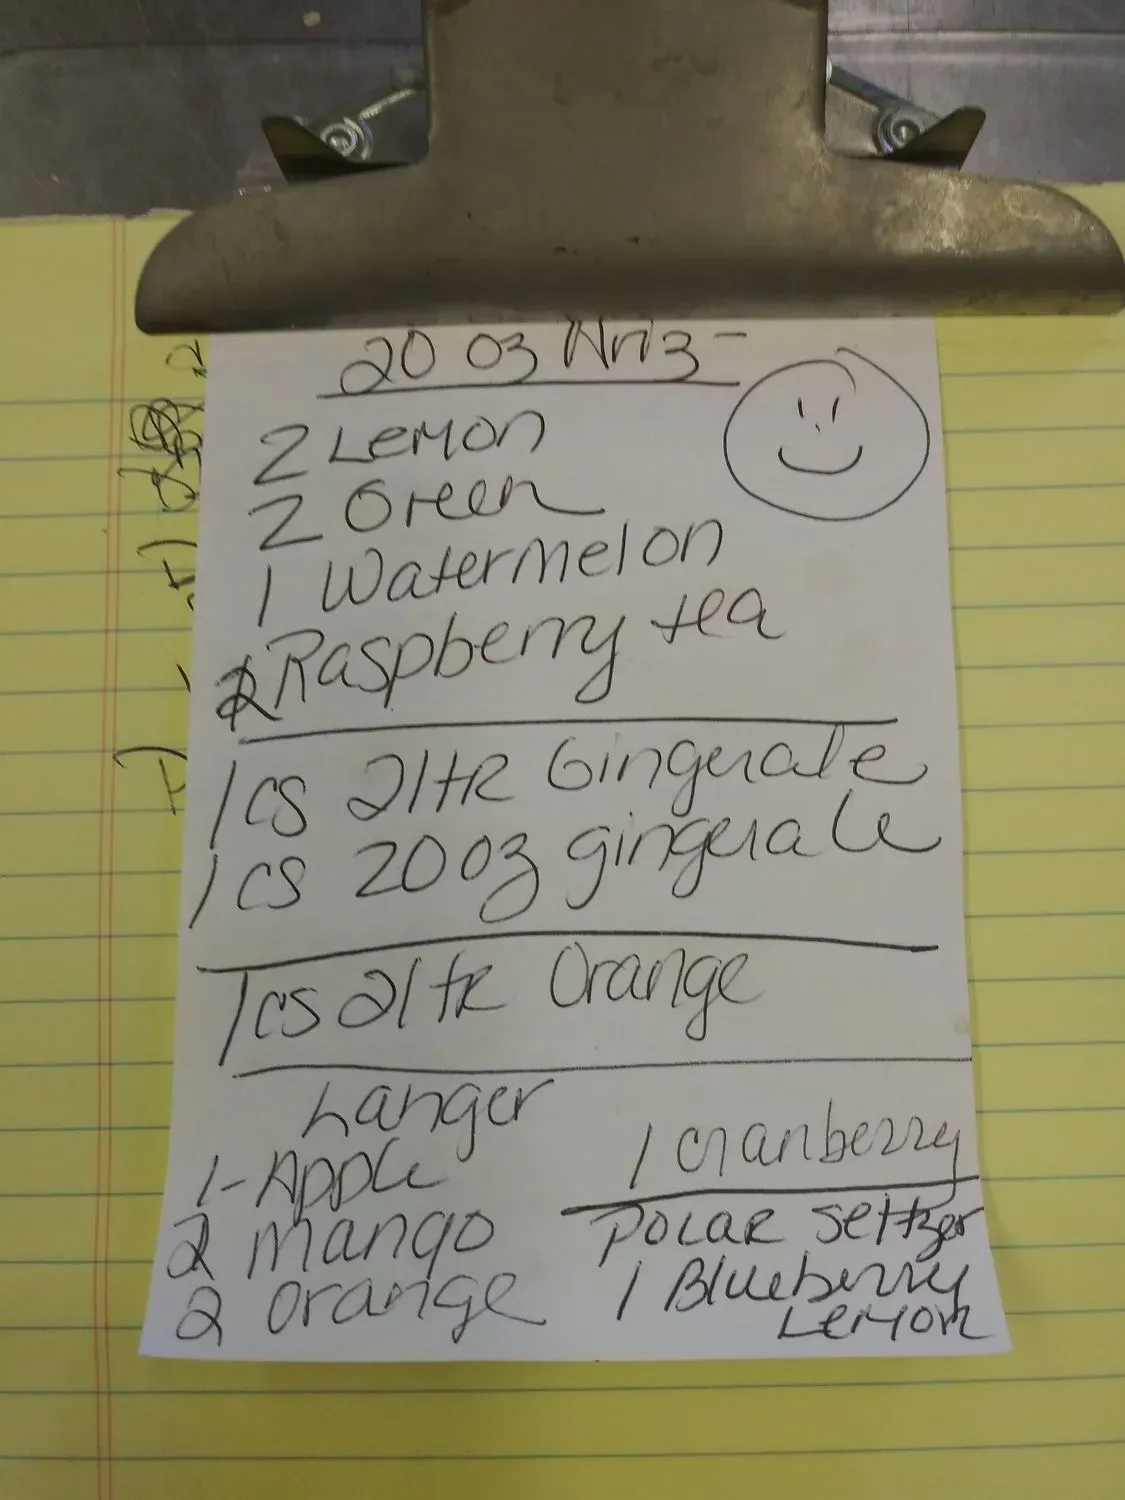 20 oz Ariz -
2 Lemon
2 Green
1 Watermelon
2 Raspberry tea
1 cs 2 ltr Gingerale
1 cs 20 oz gingerale
1 cs 2 ltr Orange
Langer
1 - Apple
2 mango
2 orange
1 cranberry
Polar Seltzer
1 Blueberry
Lemon